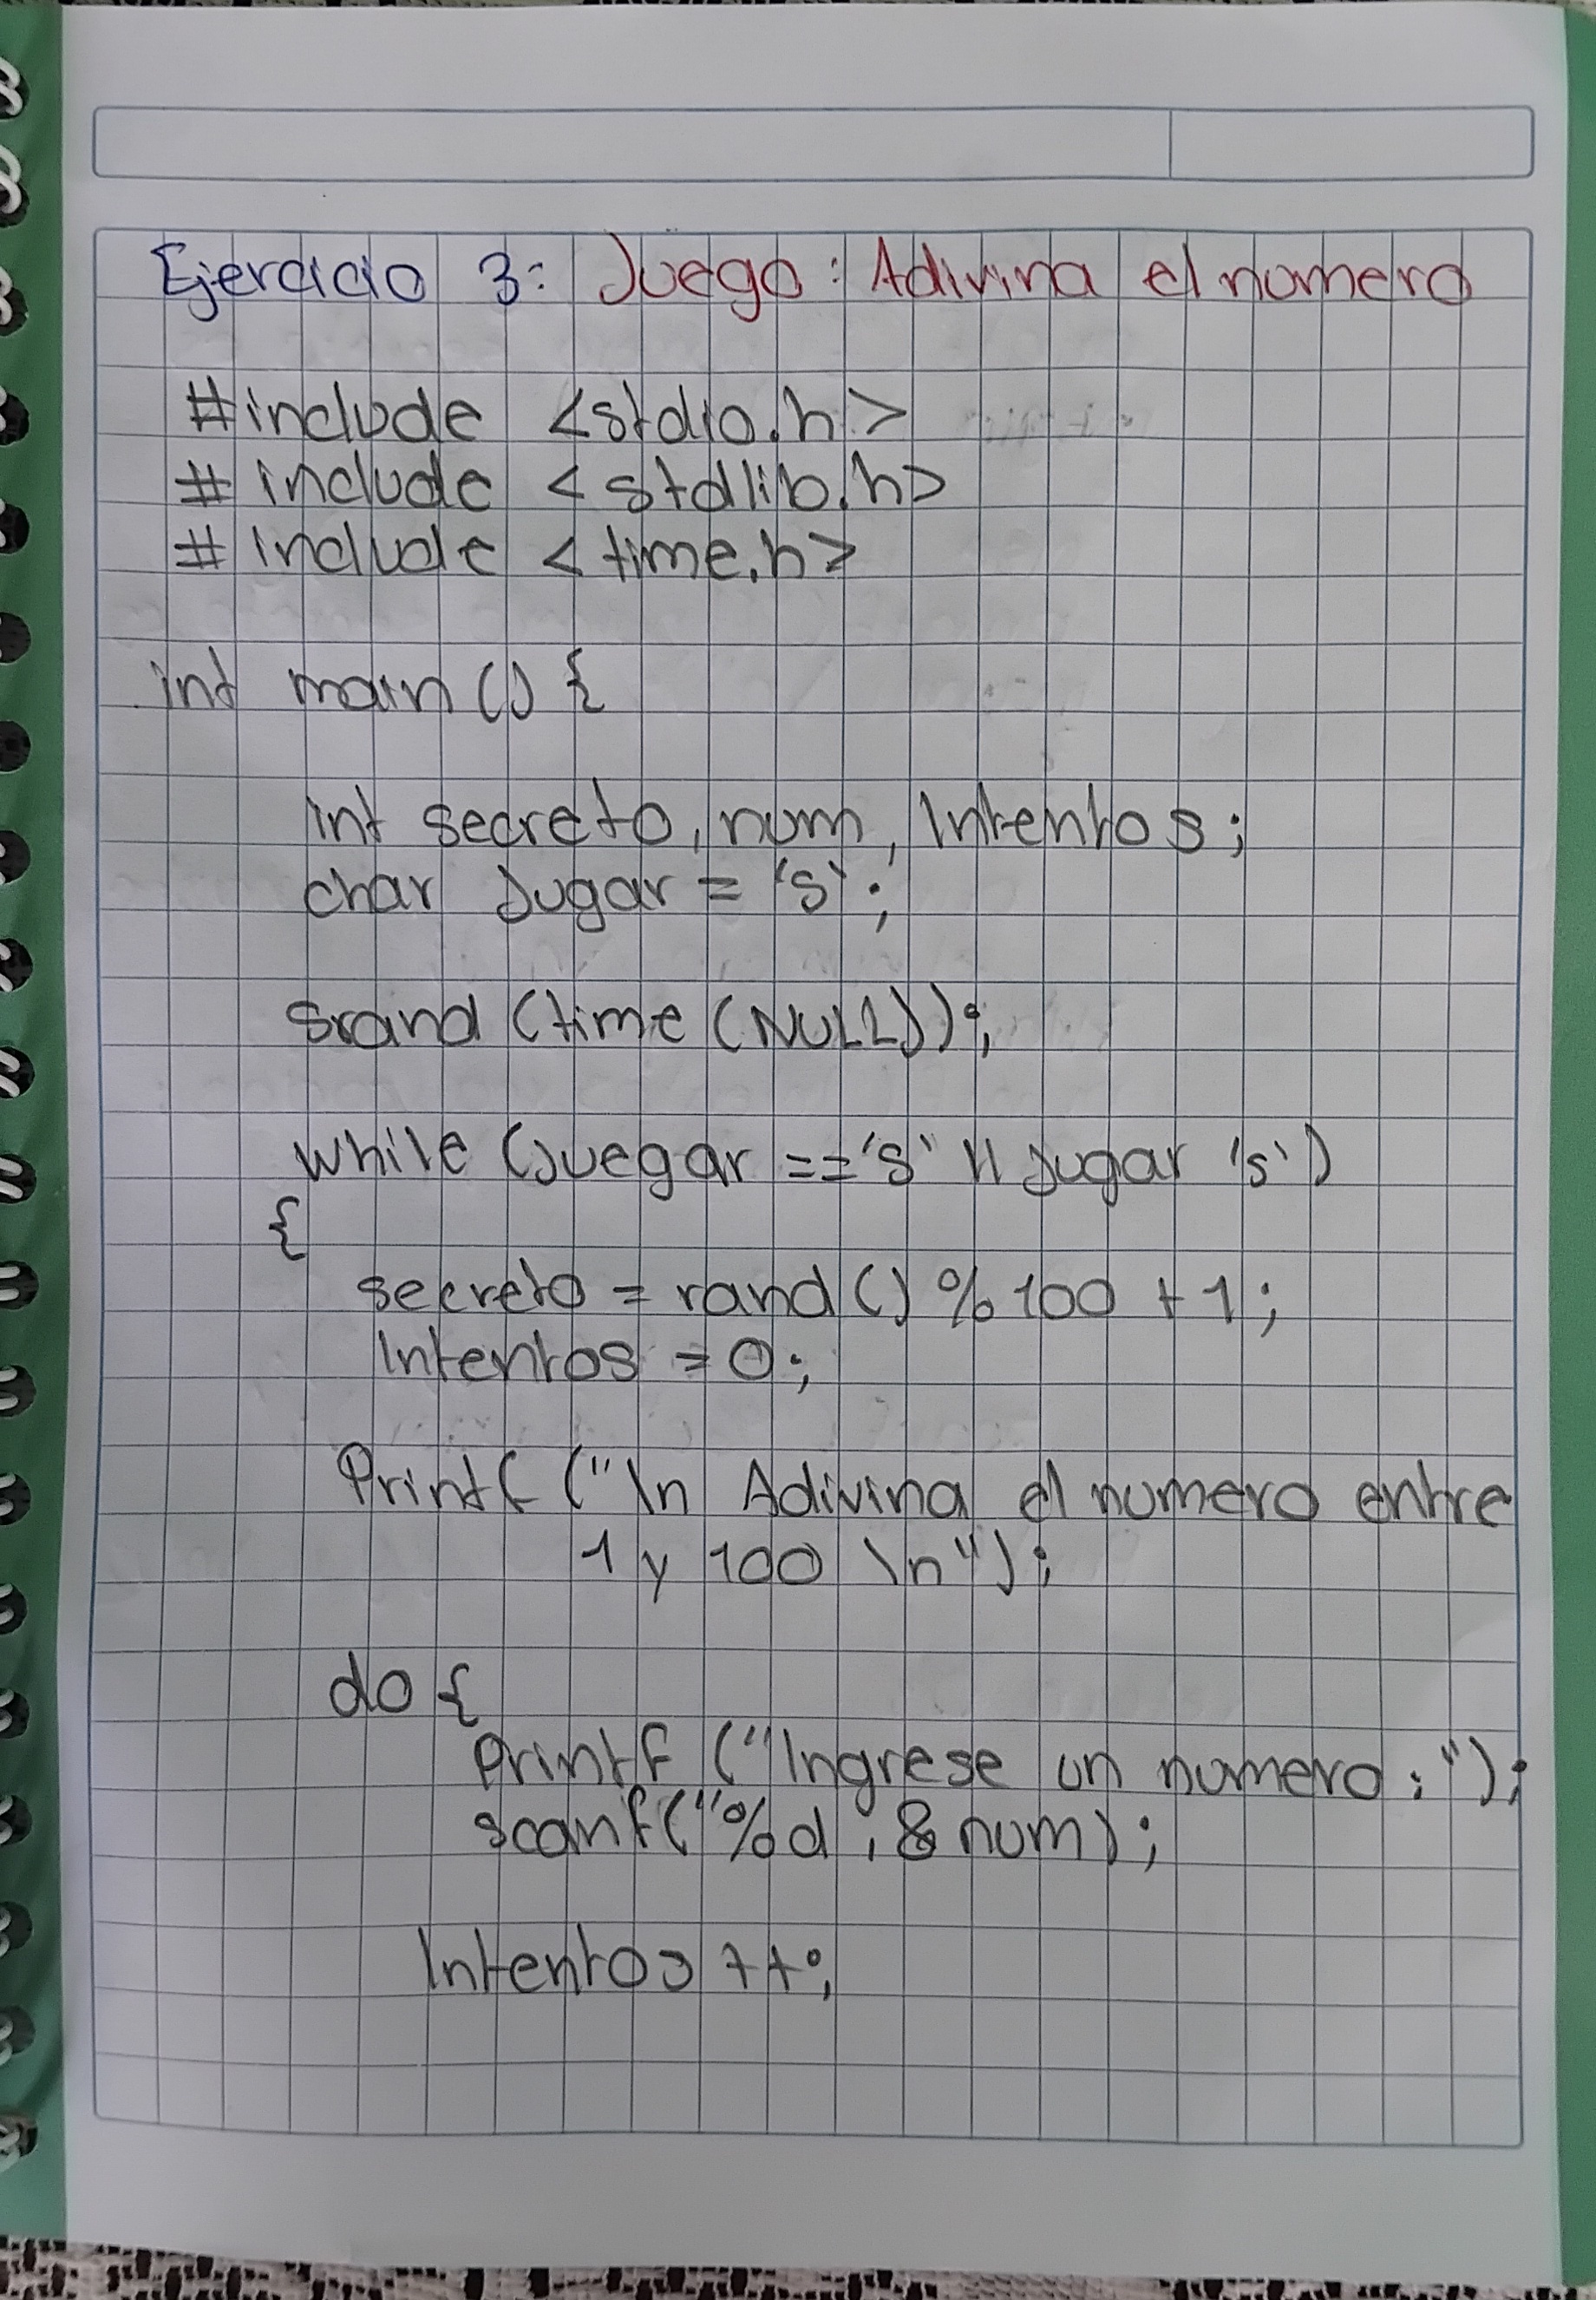 Ejercicio 3: Juego: Adivina el numero
#include <stdio.h>
# include < stdlib.h>
# include < time.h>
int main () {
int secreto, num, Intentos;
char Jugar = 's';
srand (time (NULL));
while (Juegar == 's' || Jugar 's')
{
secreto = rand () % 100 + 1;
Intentos = 0;
Printf ("\n Adivina el numero entre
1 y 100 \n");
do {
Printf ("Ingrese un numero: ");
scanf("%d , & num);
Intentos ++;